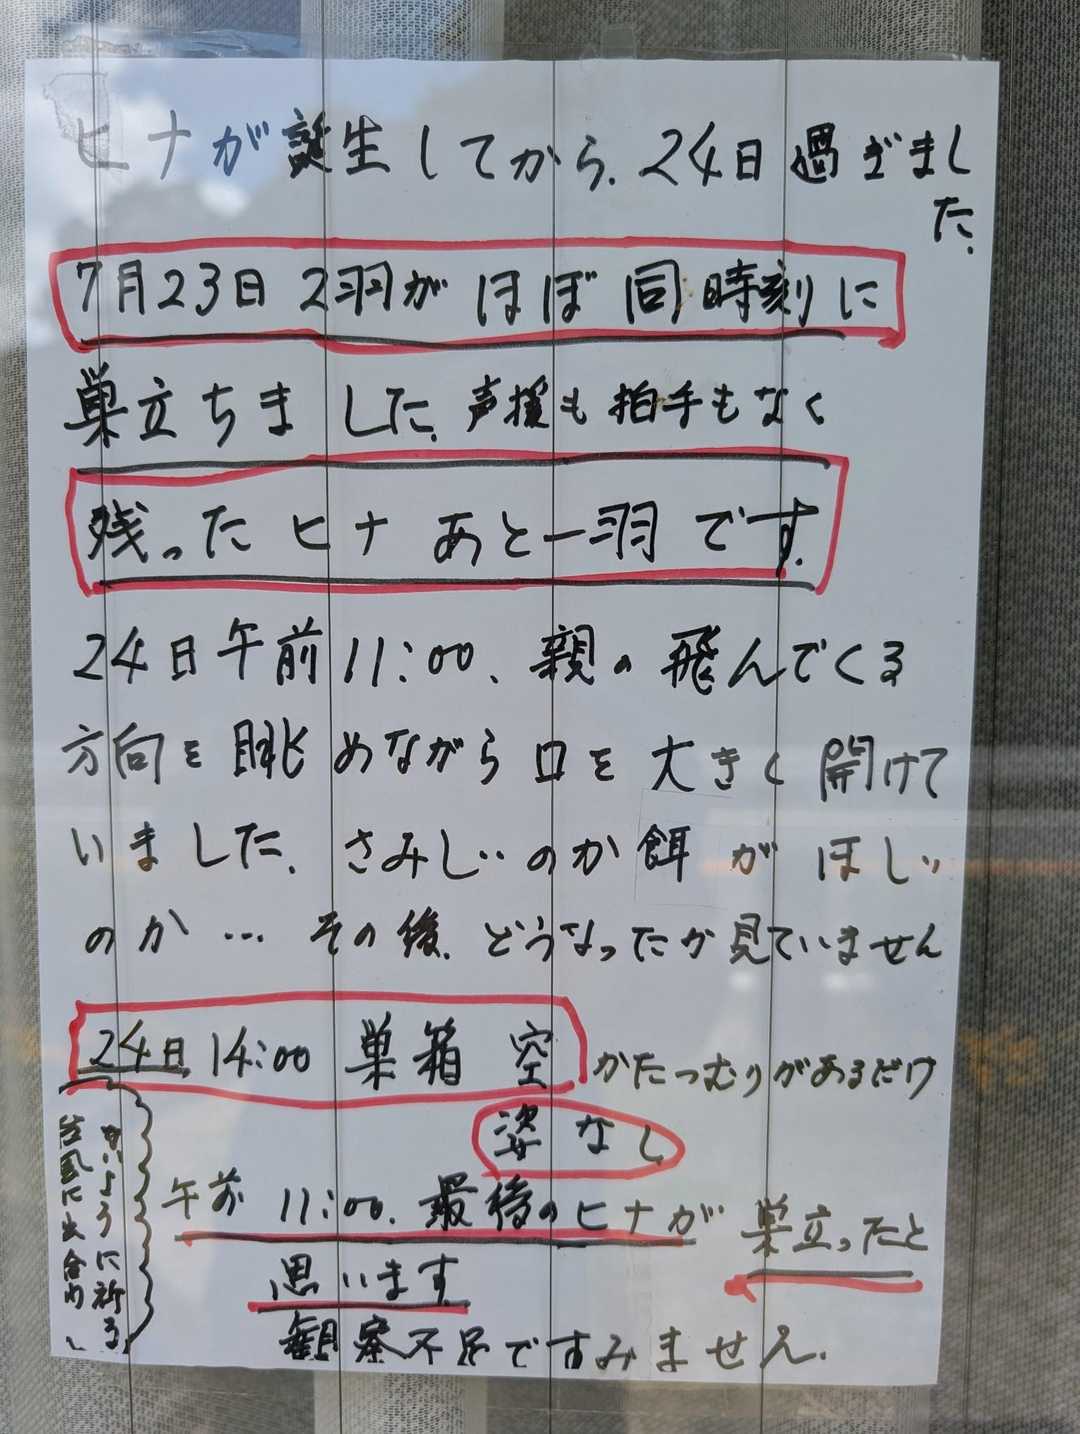 ヒナが誕生してから、24日過ぎまし
た、
7月23日 2羽が ほぼ同時刻に
巣立ちました、声援も拍手もなく
残ったヒナ あと一羽です、
24日午前11:00、親の飛んでくる
方向を眺めながら口を大きく開けて
いました、さみしいのか餌がほしい
のか… その後、どうなったか見ていません
24日、14:00 巣箱 空 かたつむりがあるだけ
姿なし
午前 11:00、最後のヒナが 巣立ったと
思います、
観察不足ですみません、
台風に出会わ
ないように祈る